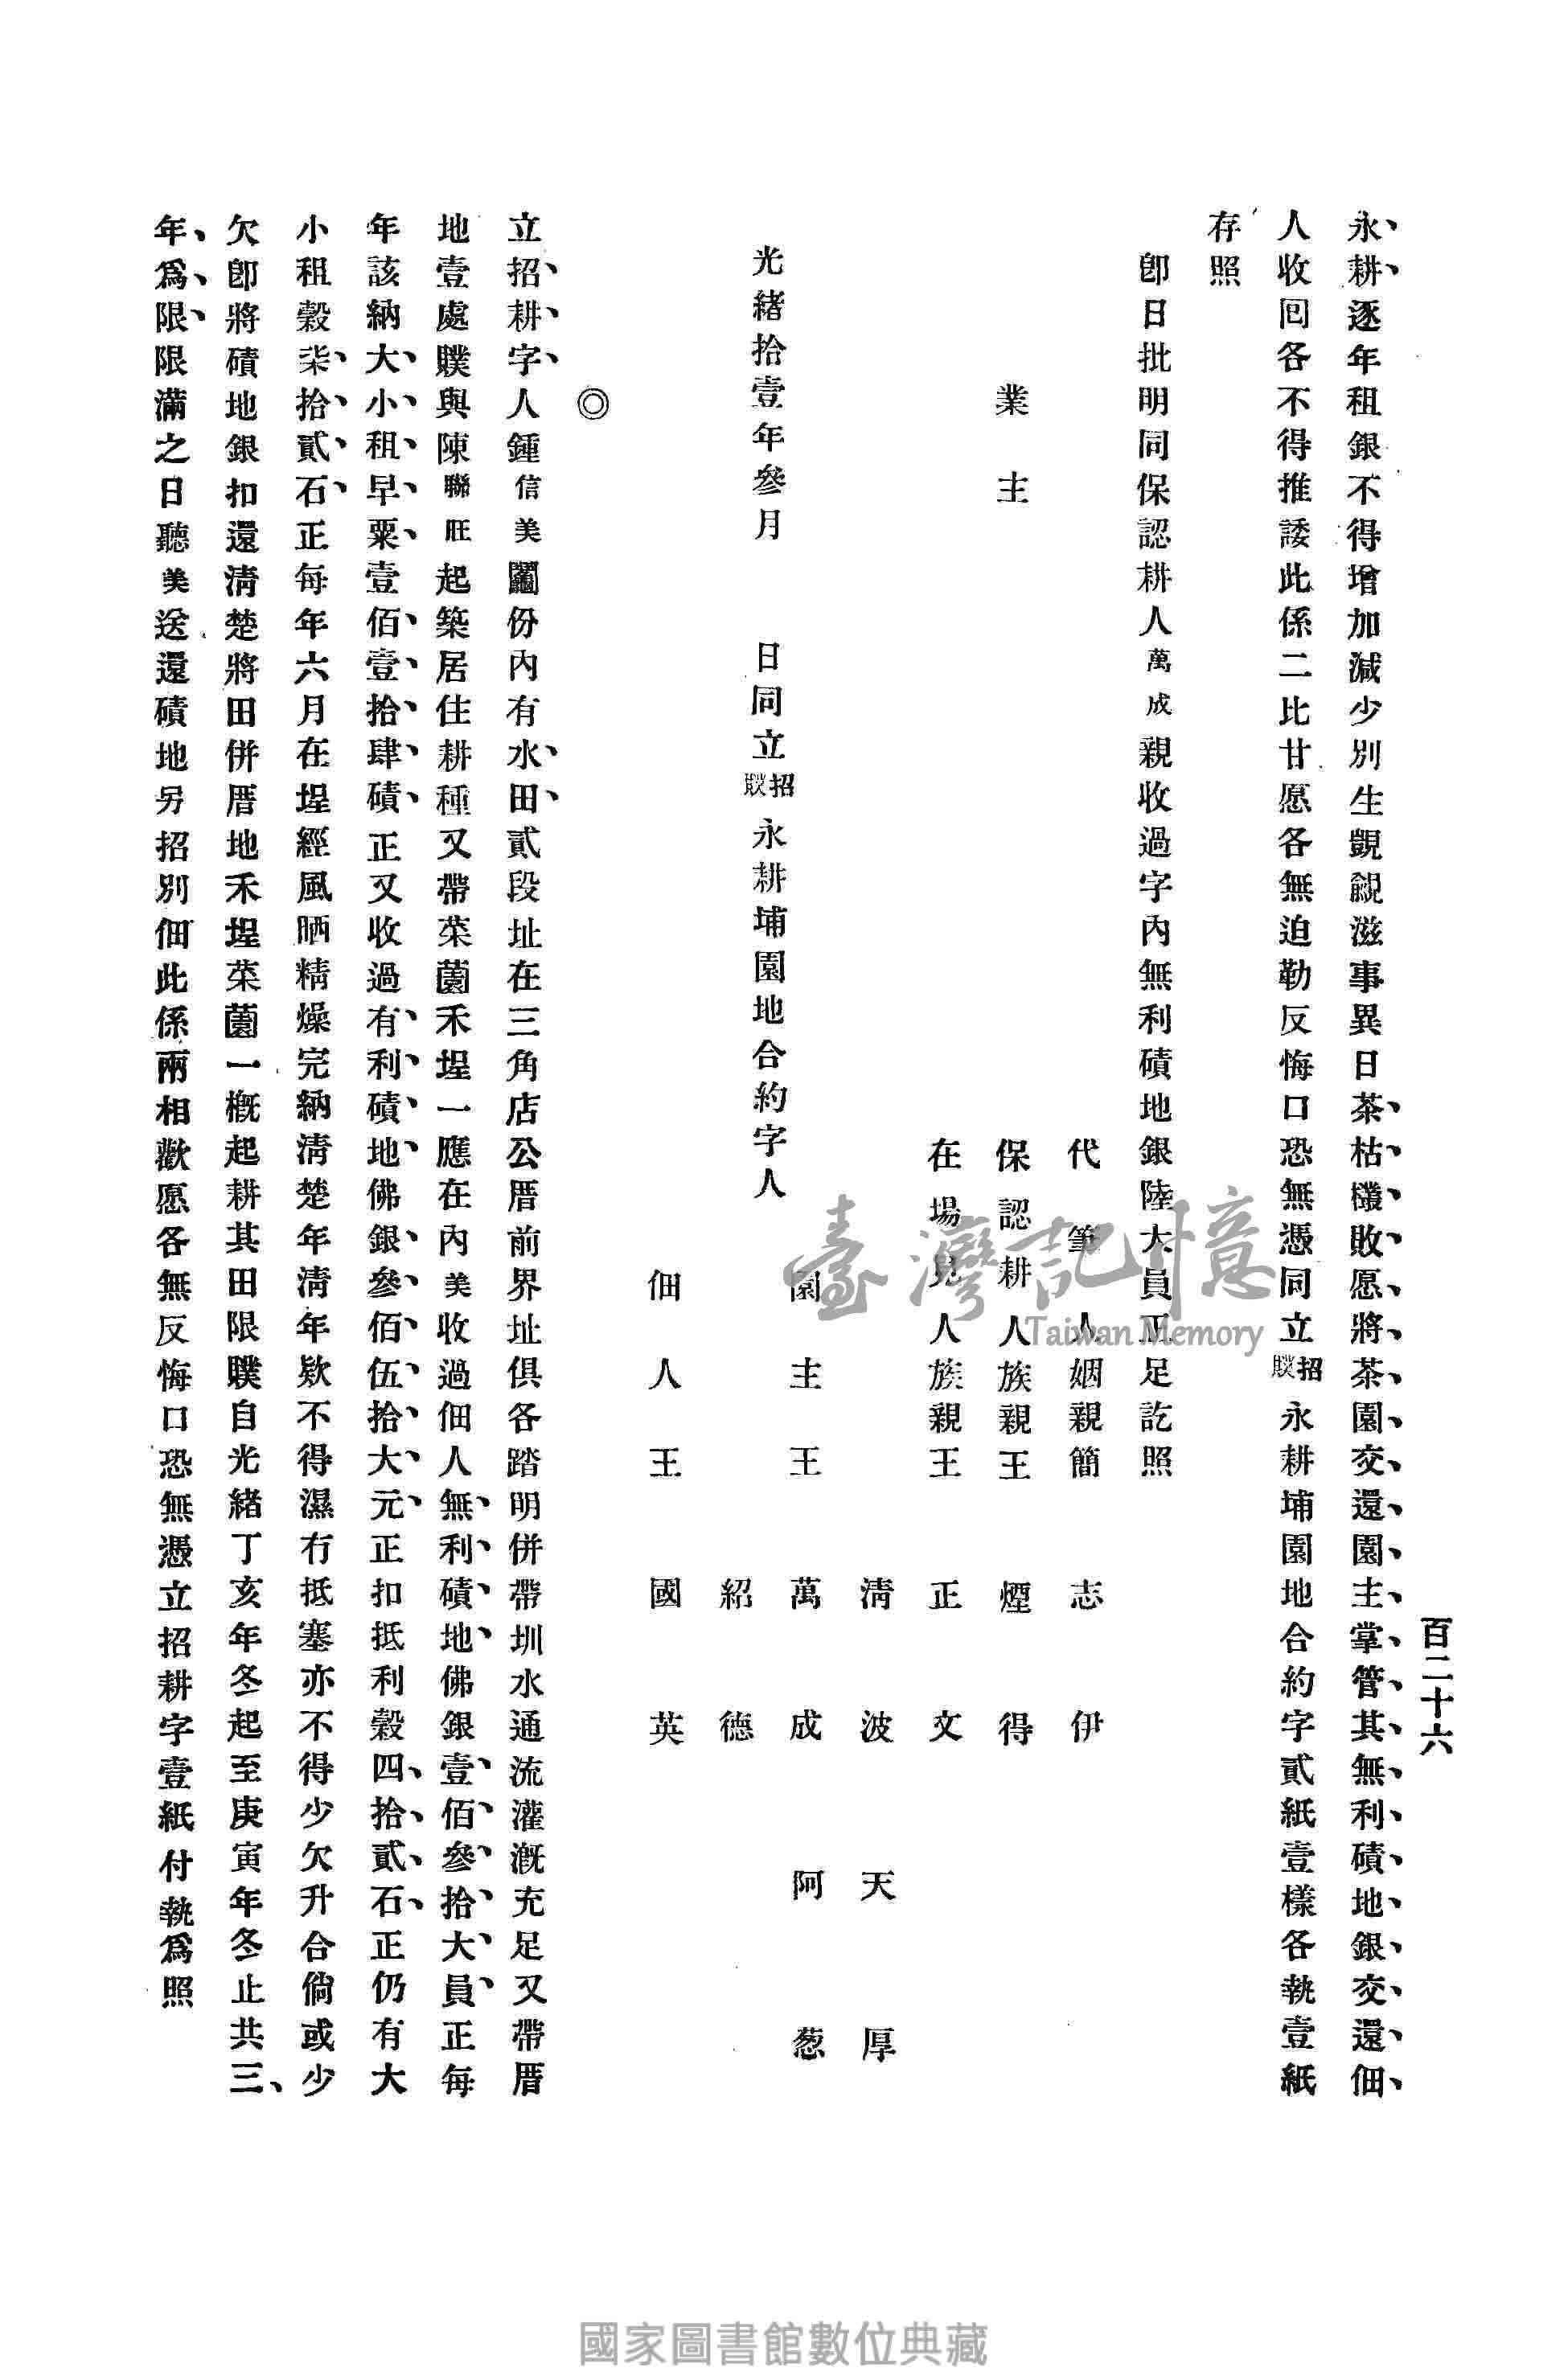 百二十六
永耕逐年租銀不得增加減少別生覬覦滋事異日茶枯欉敗愿將茶園交還園主掌管其無利磧地銀交還佃
人收回各不得推諉此係二比甘愿各無迫勒反悔口恐無憑同立招贌永耕埔園地合約字貳紙壹樣各執壹紙
存照
卽日批明同保認耕人萬成親收過字內無利磧地銀陸大員正足訖照
代筆人姻親簡志伊
業主
保認耕人族親王煙得
在場見人族親王正文
清波天厚
光緒拾壹年參月　日同立招贌永耕埔園地合約字人
園主王萬成阿葱
紹德
佃人王國英
◎
立招耕字人鍾信美鬮份內有水田貳段址在三角店公厝前界址俱各踏明併帶圳水通流灌漑充足又帶厝
地壹處贌與陳聯旺起築居住耕種又帶菜薗禾埕一應在內美收過佃人無利磧地佛銀壹佰參拾大員正每
年該納大小租早粟壹佰壹拾肆磧正又收過有利磧地佛銀參佰伍拾大元正扣抵利穀四拾貳石正仍有大
小租穀柒拾貳石正每年六月在埕經風晒精燥完納清楚年清年欵不得濕冇抵塞亦不得少欠升合倘或少
欠卽將磧地銀扣還清楚將田併厝地禾埕菜薗一概起耕其田限贌自光緒丁亥年冬起至庚寅年冬止共三
年爲限限滿之日聽美送還磧地另招別佃此係兩相歡愿各無反悔口恐無憑立招耕字壹紙付執爲照
臺灣記憶
Taiwan Memory
國家圖書館數位典藏